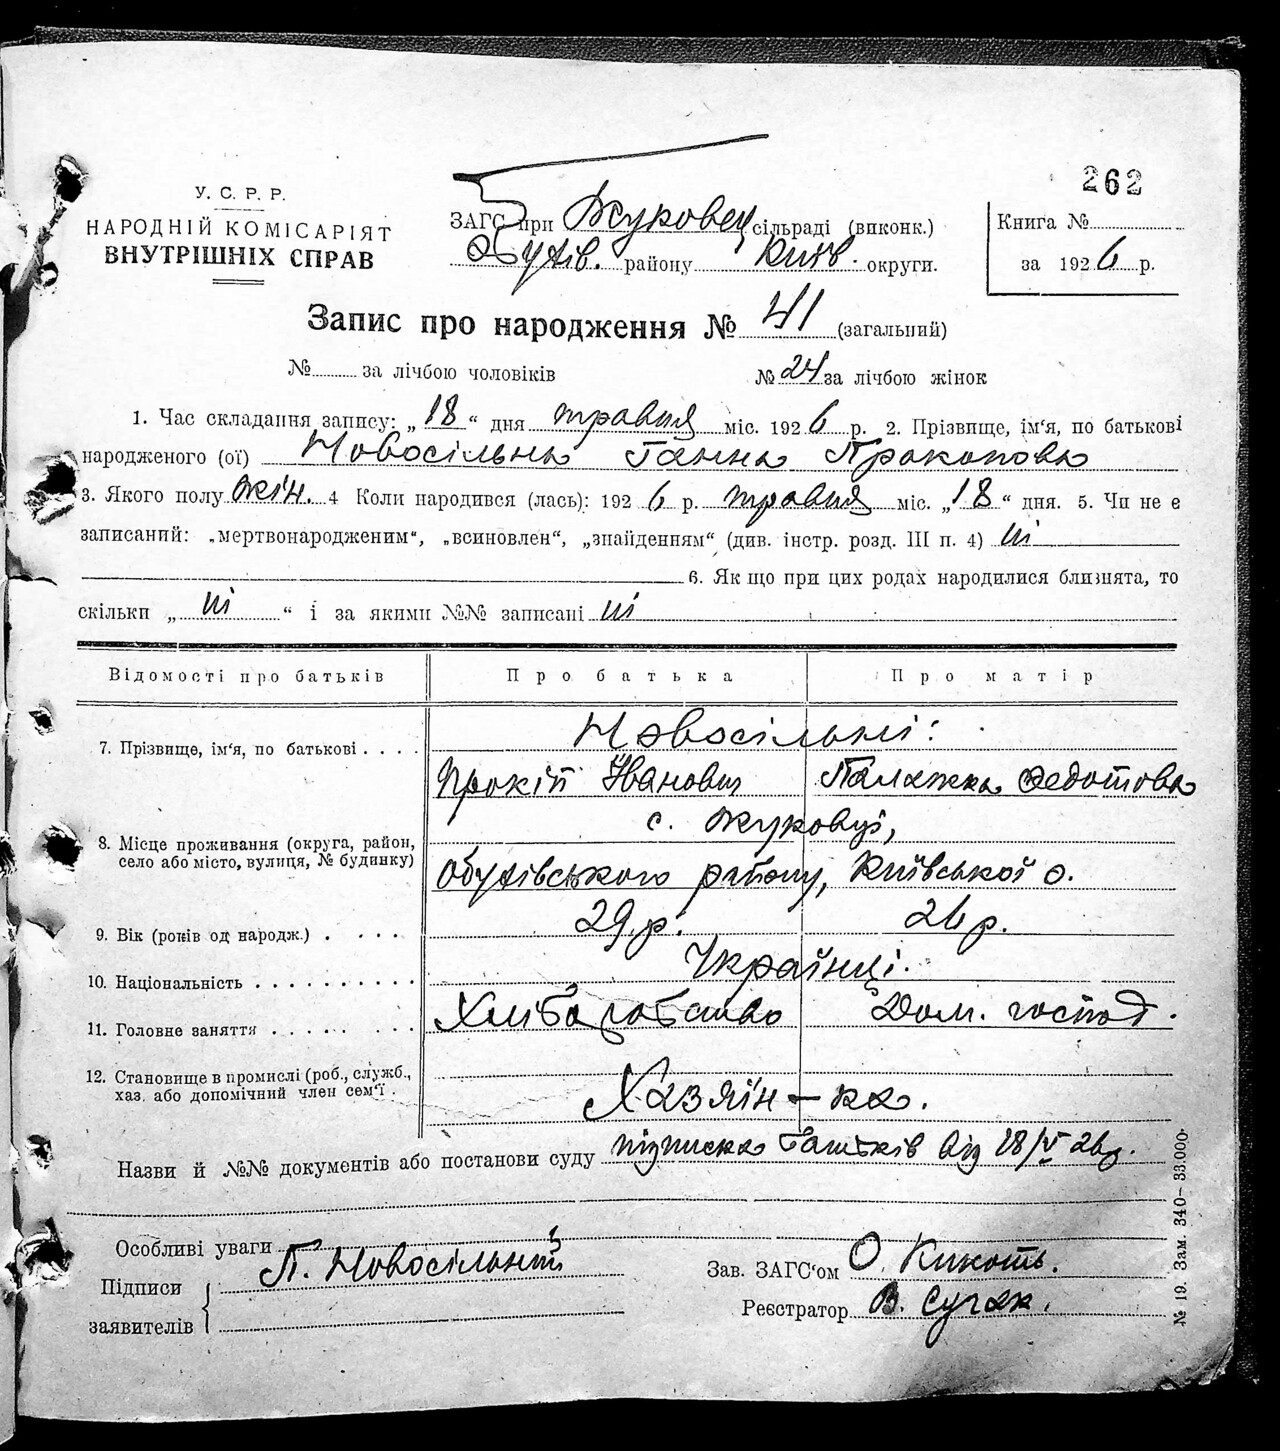 262
У. С. Р. Р.
НАРОДНІЙ КОМІСАРІЯТ
ВНУТРІШНІХ СПРАВ
ЗАГС при Жуковец сільраді (виконк.)
Обухів. району Київ. округи.
Книга №
за 1926 р.
Запис про народження № 41 (загальний)
№ за лічбою чоловіків № 24 за лічбою жінок
1. Час складання запису: „18“ дня травня міс. 1926 р. 2. Прізвище, ім'я, по батькові
народженого (ої) Новосільна Ганна Прокопова
3. Якого полу жін. 4 Коли народився (лась): 1926 р. травня міс. „18“ дня. 5. Чи не є
записаний: „мертвонародженим“, „всиновлен“, „знайденням“ (див. інстр. розд. III п. 4) ні
6. Як що при цих родах народилися близнята, то
скільки „ні“ і за якими №№ записані ні
Відомості про батьків Про батька Про матір
7. Прізвище, ім'я, по батькові . . . . Новосільні:
Прокіп Іванович Палажка Федотова
8. Місце проживання (округа, район, село або місто, вулиця, № будинку) с. Жуковці,
Обухівського району, Київської о.
9. Вік (років од народж.) . . . . 29 р. 26 р.
10. Національність . . . . . . . . . . Українці.
11. Головне заняття . . . . . . . . . Хліборобство Дом. господ.
12. Становище в промислі (роб., служб., хаз. або допомічний член сем'ї . Хазяїн – ка.
Назви й №№ документів або постанови суду підписка батьків від 18/V 26 р.
Особливі уваги
Підписи заявителів П. Новосільній
Зав. ЗАГС'ом О. Кикоть.
Реєстратор В. Сугак.
№ 19. Зам. 340– 33.000.